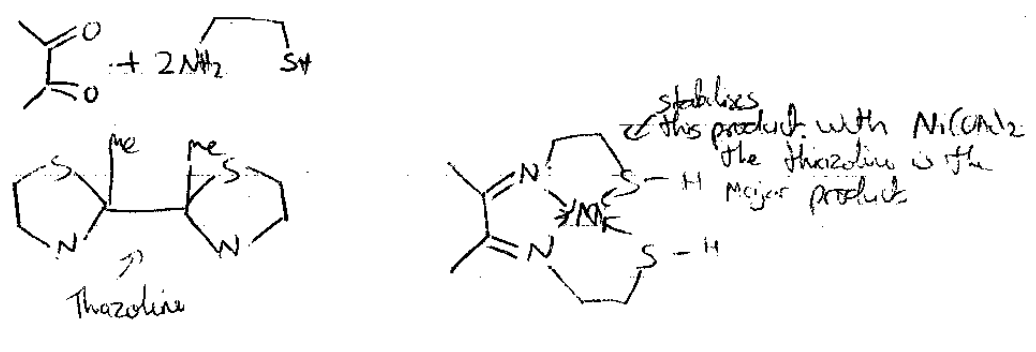 O
+ 2NH2 SH
O
Me Me
S S
N N
Thazoline
stabilises
this product with Ni(OAc)2
the thiazoline is the
Major product
N S - H
M
N S - H